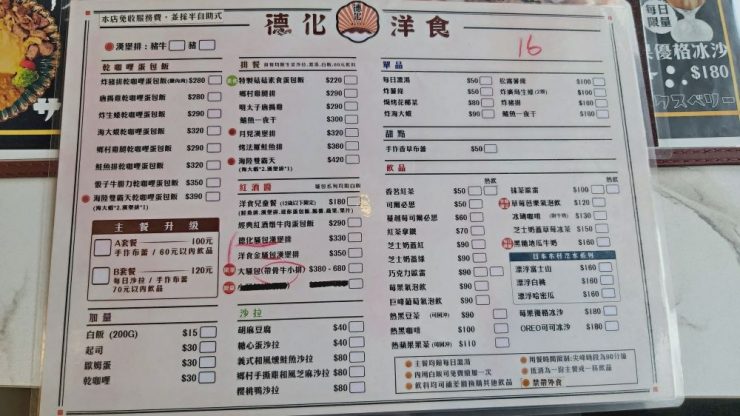 本店免收服務費，並採半自助式
德化洋食
16
漢堡排：豬牛 豬
乾咖哩蛋包飯
炸豬排乾咖哩蛋包飯 $280
唐揚雞乾咖哩蛋包飯 $280
炸生蠔乾咖哩蛋包飯 $290
海大蝦乾咖哩蛋包飯 $320
鄉村雞腿乾咖哩蛋包飯 $350
鮭魚排乾咖哩蛋包飯 $350
骰子牛肋乃乾咖哩蛋包飯 $350
海陸雙霸天乾咖哩蛋包飯 $390
(海大蝦*2.漢堡排*1)
主餐升級
A套餐 100元
手作布蕾 / 60元以內飲品
B套餐 120元
每日沙拉 / 手作布蕾
70元以內飲品
加量
白飯 (200G) $15
起司 $30
歐姆蛋 $30
乾咖哩 $30
排餐
特製菇菇素食蛋包飯 $220
鄉村雞腿排 $290
明太子唐揚雞 $320
鯖魚一夜干 $320
月見漢堡排 $320
烤法羅鮭魚排 $360
海陸雙霸天 $420
(海大蝦*2.漢堡排*1)
紅酒醬
洋食兒童餐 (12歲以下限定) $180
經典紅酒燉牛肉蛋包飯 $290
德化麵包漢堡排 $330
洋食盒麵包漢堡排 $350
大麵包(帶骨牛小排) $380 - 680
沙拉
胡麻豆腐 $40
糖心蛋沙拉 $40
義式和風燻鮭魚沙拉 $80
鄉村手撕雞和風芝麻沙拉 $80
櫻桃鴨沙拉 $80
單品
每日濃湯 $50
炸薯條 $50
焗烤花椰菜 $80
炸海大蝦 $90
松露薯條 $100
炸廣島生蠔 (2顆) $100
炸豬排 $100
鯖魚一夜干 $100
甜點
手作香草布蕾 $50
飲品
熱飲
香茗紅茶 $50
可爾必思 $60
蔓越莓可爾必思 $60
紅茶拿鐵 $70
芝士奶蓋紅 $80
芝士奶蓋綠 $80
巧克力歐蕾 $80
莓果氣泡飲 $80
巨峰葡萄氣泡飲 $80
熱黑豆茶 (可回沖) $80
熱咖啡 $80
熱蘋果果茶 (可回沖) $110
熱飲
抹茶歐蕾 $100
草莓芭樂氣泡飲 $120
冰磚咖啡 (附牛奶) $130
芝士奶蓋草莓冰茶 $150
黑糖地瓜牛奶 $150
日本水科芝水系列
漂浮富士山 $160
漂浮白桃 $160
漂浮哈密瓜 $160
莓果優格冰沙 $180
OREO可可冰沙 $180
主餐均附每日濃湯
內用白飯可免費續加一次
飲料均可補差額換購其他飲品
用餐時間限制:尖峰時段為90分鐘
低消為一份主餐或一杯飲品
禁帶外食
每日
限量
果優格冰沙
$180